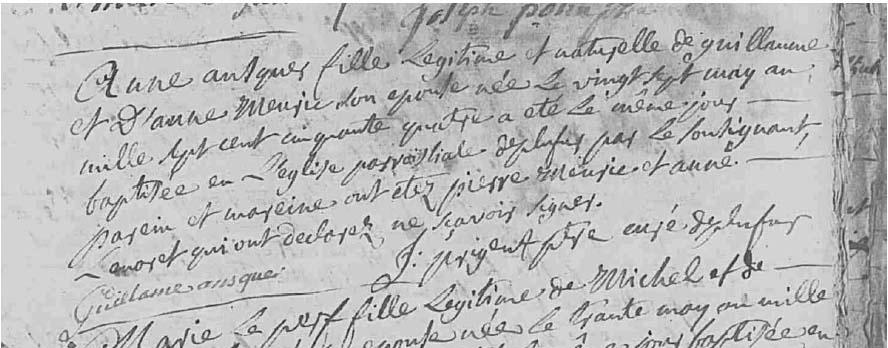 Joseph
Anne ansquer fille Legitime et naturelle de guillaume
et D'anne Meusic son epouse née Le vingt sept may an
mille sept cent cinquante quatre a eté Le même jour
baptisée en L'eglise parroissiale de plufur par Le soussignant,
parein et mareine ont étez pierre Meusic et anne
qui ont declarez ne scavoir signer.
Guillame ansquer J: prigent ptre curé de plufur
Marie Le perf fille Legitime de Michel et de
epouse née Le trante may an mille
jour baptisée en